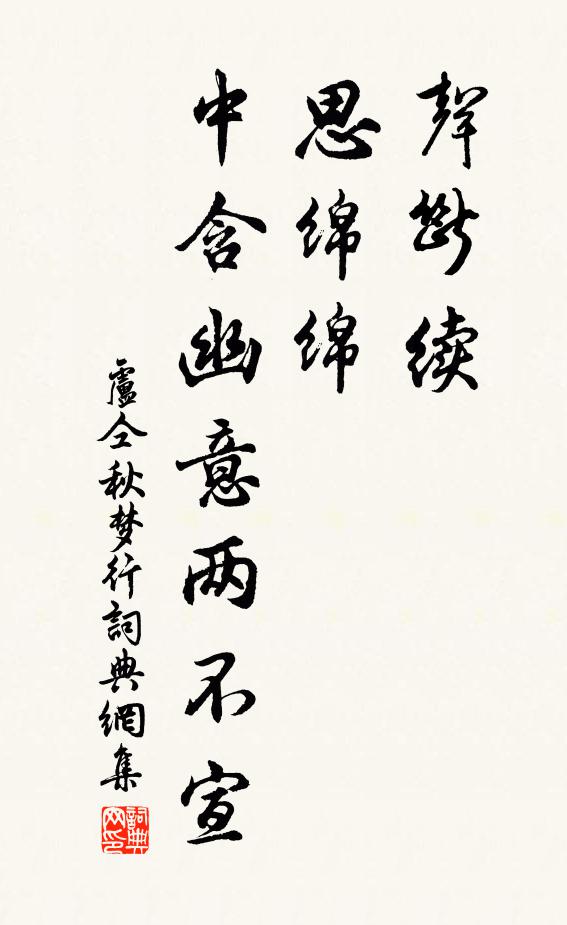 聲斷续
思绵绵
中含幽意两不宣
盧仝秋梦行詞典網集
詞典网印